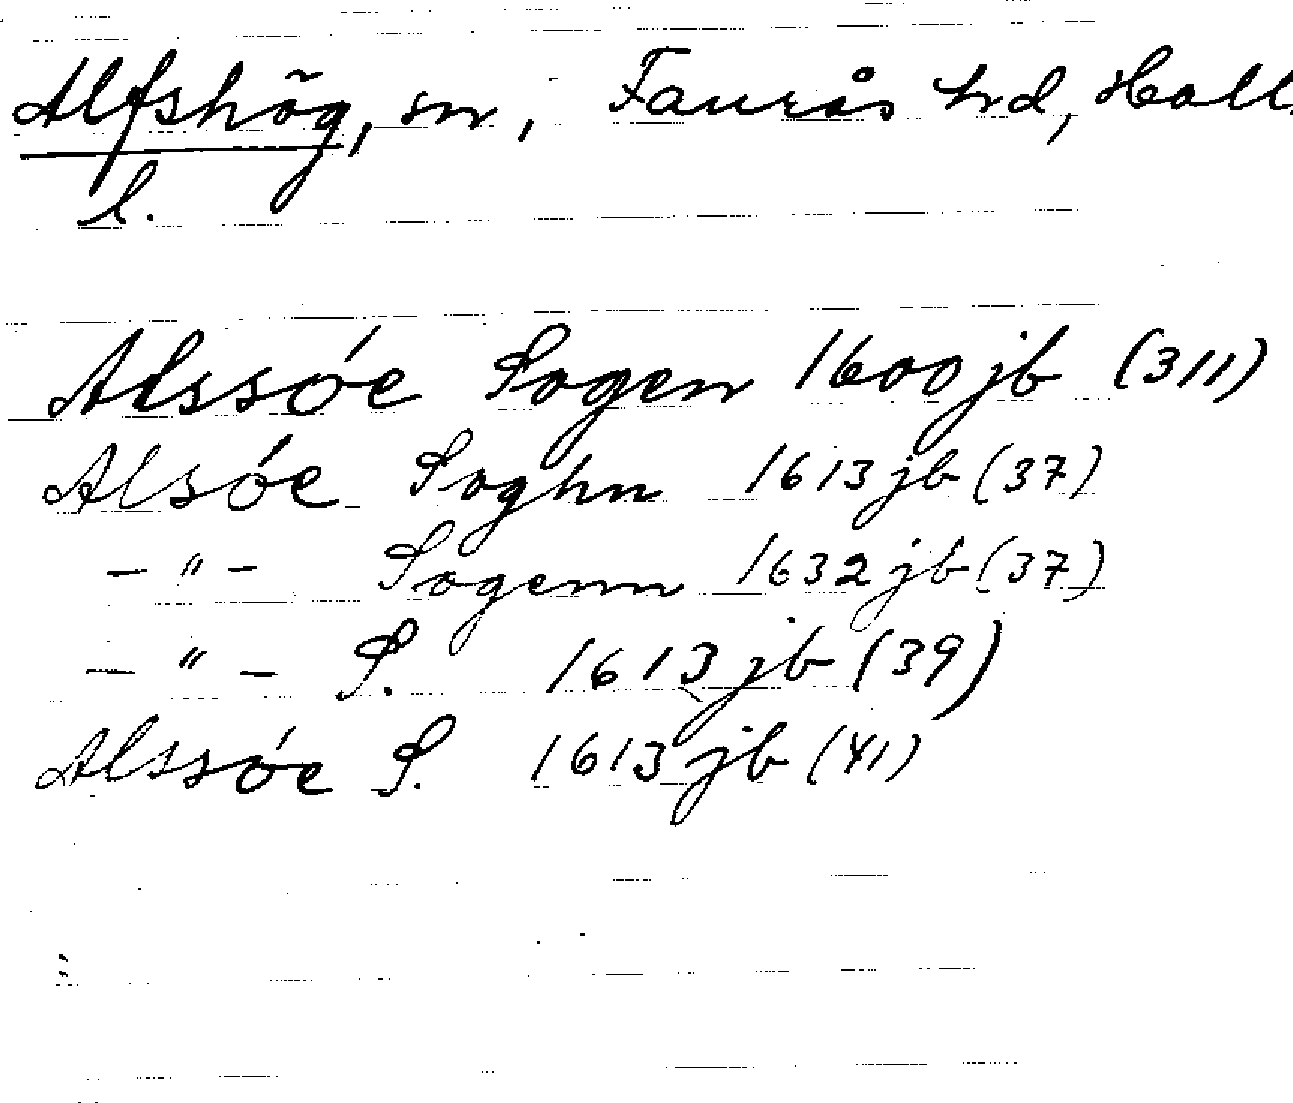 Alfshög, sn, Faurås hd, Hall.
l.
Alssóe Sogen 1600 jb (311)
Alsóe Soghn 1613 jb (37)
– " – Sogenn 1632 jb (37)
– " – S. 1613 jb (39)
Alssóe S. 1613 jb (41)